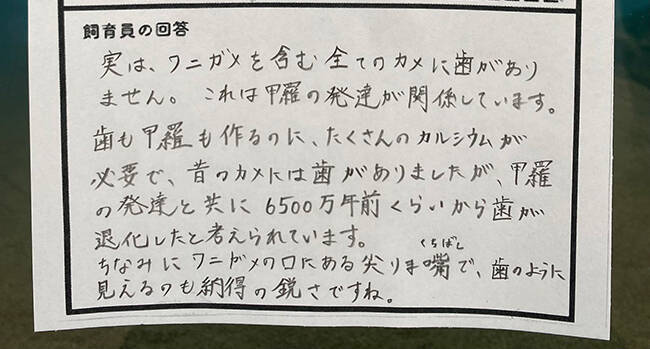 飼育員の回答
実は、ワニガメを含む全てのカメに歯があり
ません。これは甲羅の発達が関係しています。
歯も甲羅も作るのに、たくさんのカルシウムが
必要で、昔のカメには歯がありましたが、甲羅
の発達と共に6500万年前くらいから歯が
退化したと考えられています。
くちばし
ちなみにワニガメの口にある尖りま嘴で、歯のように
見えるのも納得の鋭さですね。